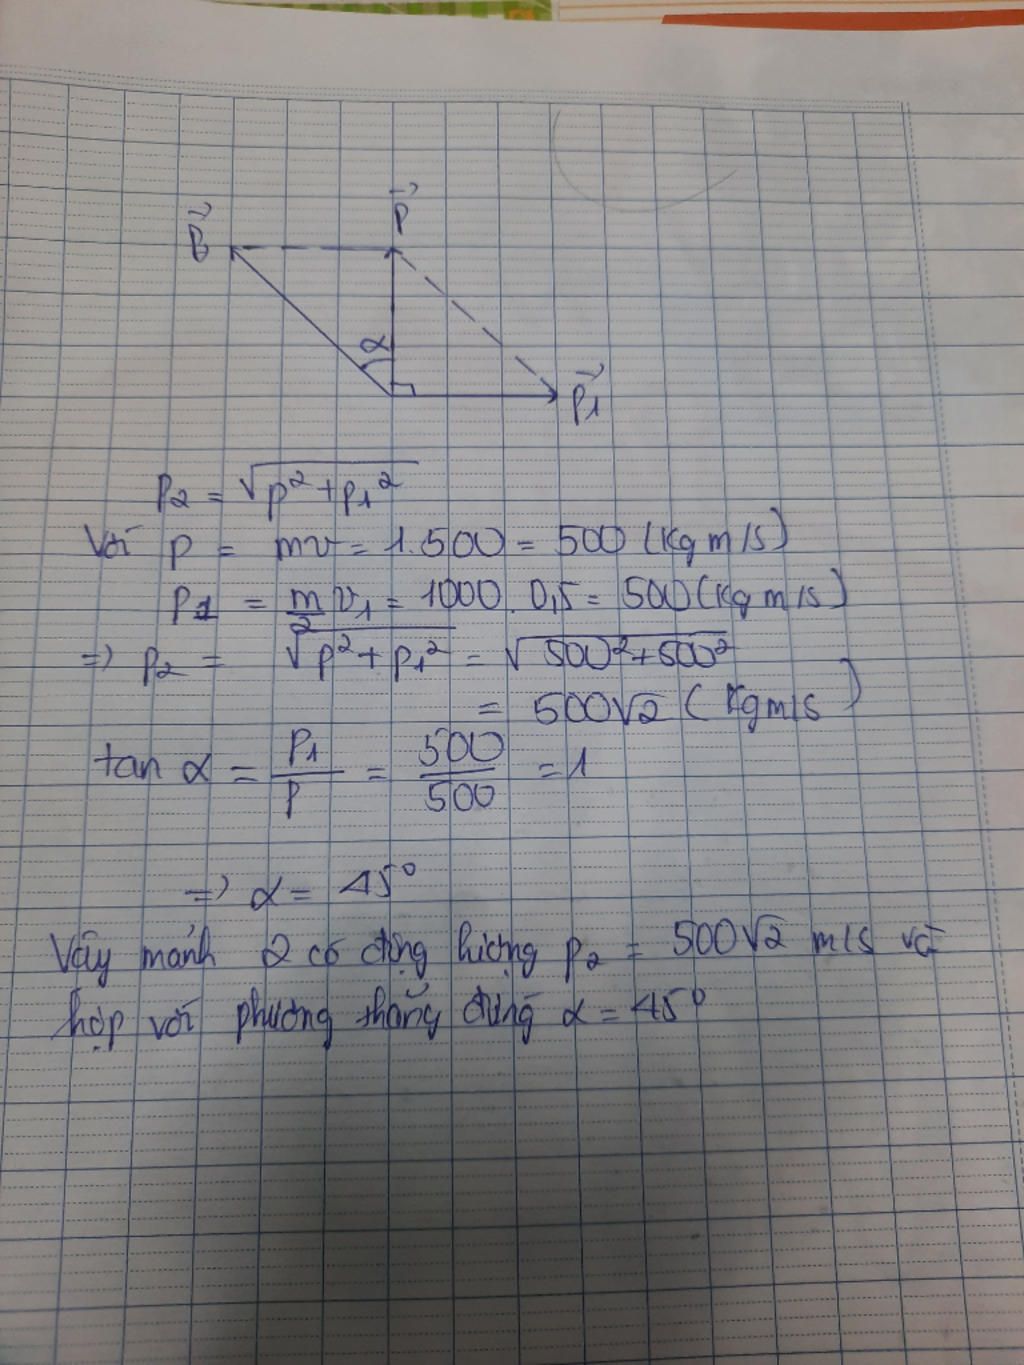 P⃗
P⃗₂
α
P⃗₁
P₂ = √(p² + p₁²)
Với p = mv = 1.500 = 500 (kg m/s)
P₁ = m/2 v₁ = 1000 . 0,5 = 500 (kg m/s)
=> p₂ = √(p² + p₁²) = √(500² + 500²)
= 500√2 (kg m/s)
tan α = P₁/P = 500/500 = 1
=> α = 45°
Vậy mảnh 2 có động lượng p₂ = 500√2 m/s và
hợp với phương thẳng đứng α = 45°